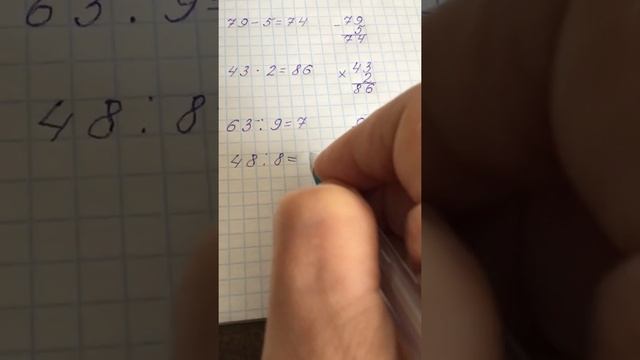 79-5=74
-79
5
74
43·2=86
×43
2
86
63:9=7
48:8=